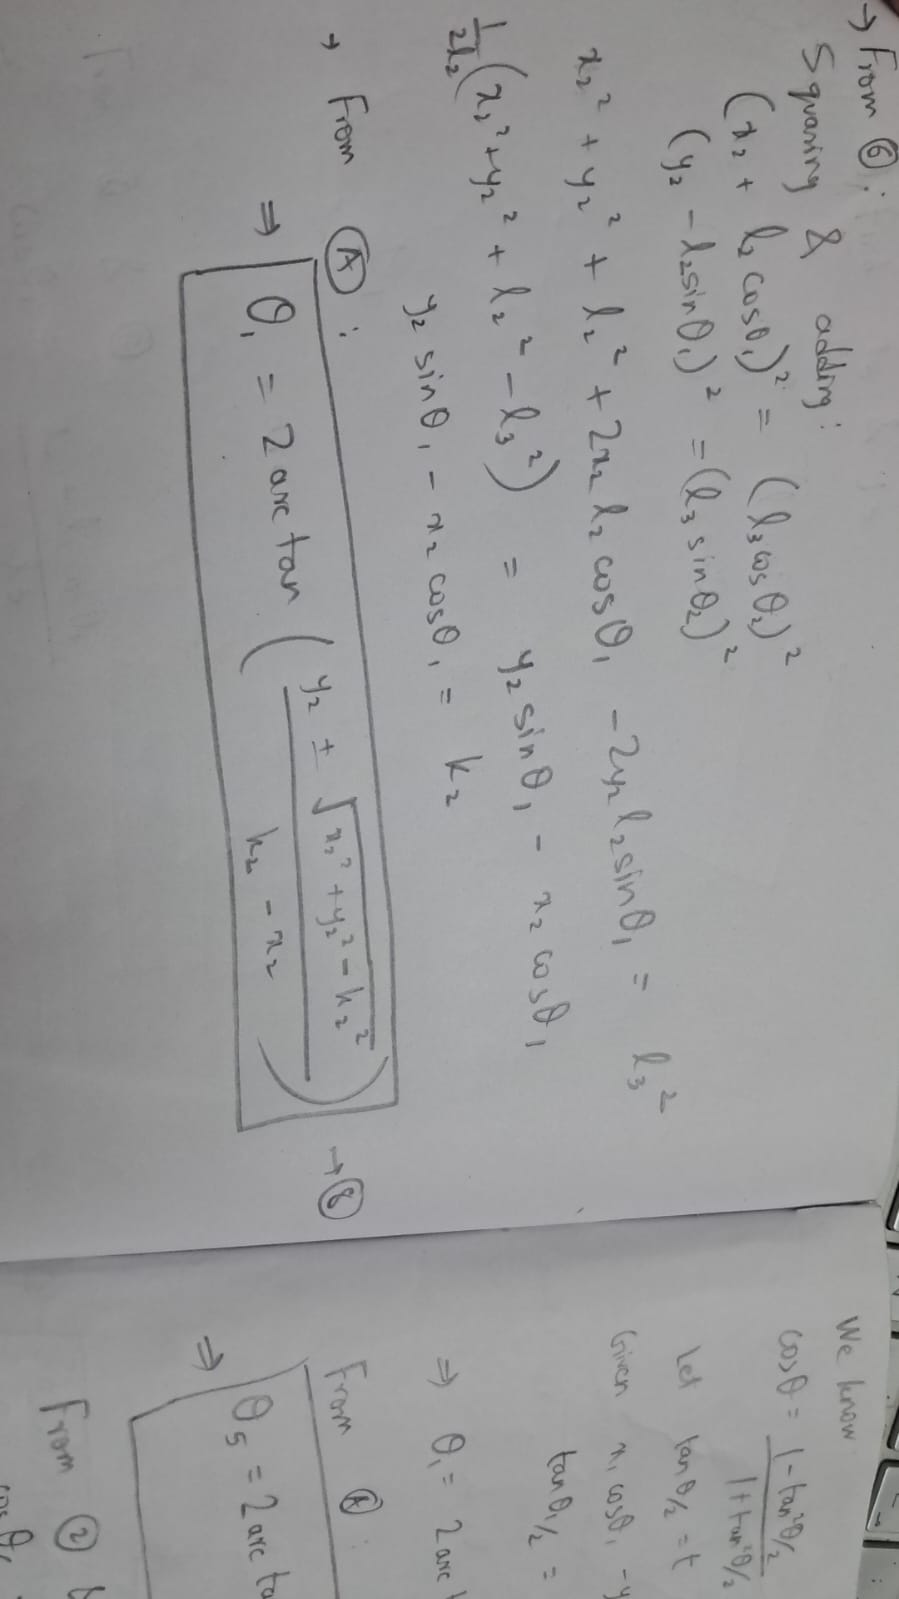 → From ⑥:
Squaring & adding:
(x₂ + l₂ cosθ₁)² = (l₃ cosθ₂)²
(y₂ - l₂ sinθ₁)² = (l₃ sinθ₂)²
x₂² + y₂² + l₂² + 2x₂ l₂ cosθ₁ - 2y₂ l₂ sinθ₁ = l₃²
1/2l₂ (x₂² + y₂² + l₂² - l₃²) = y₂ sinθ₁ - x₂ cosθ₁
y₂ sinθ₁ - x₂ cosθ₁ = k₂
→ From Ⓐ:
⇒ θ₁ = 2 arc tan ( (y₂ ± √(x₂² + y₂² - k₂²)) / (k₂ - x₂) ) → ⑧
We know
cosθ = (1 - tan²θ/2) / (1 + tan²θ/2)
Let tanθ/2 = t
Given x₁ cosθ₁ - y
tanθ₁/2 =
⇒ θ₁ = 2 arc t
From Ⓐ:
⇒ θ₅ = 2 arc ta
From ②
cosθ₁